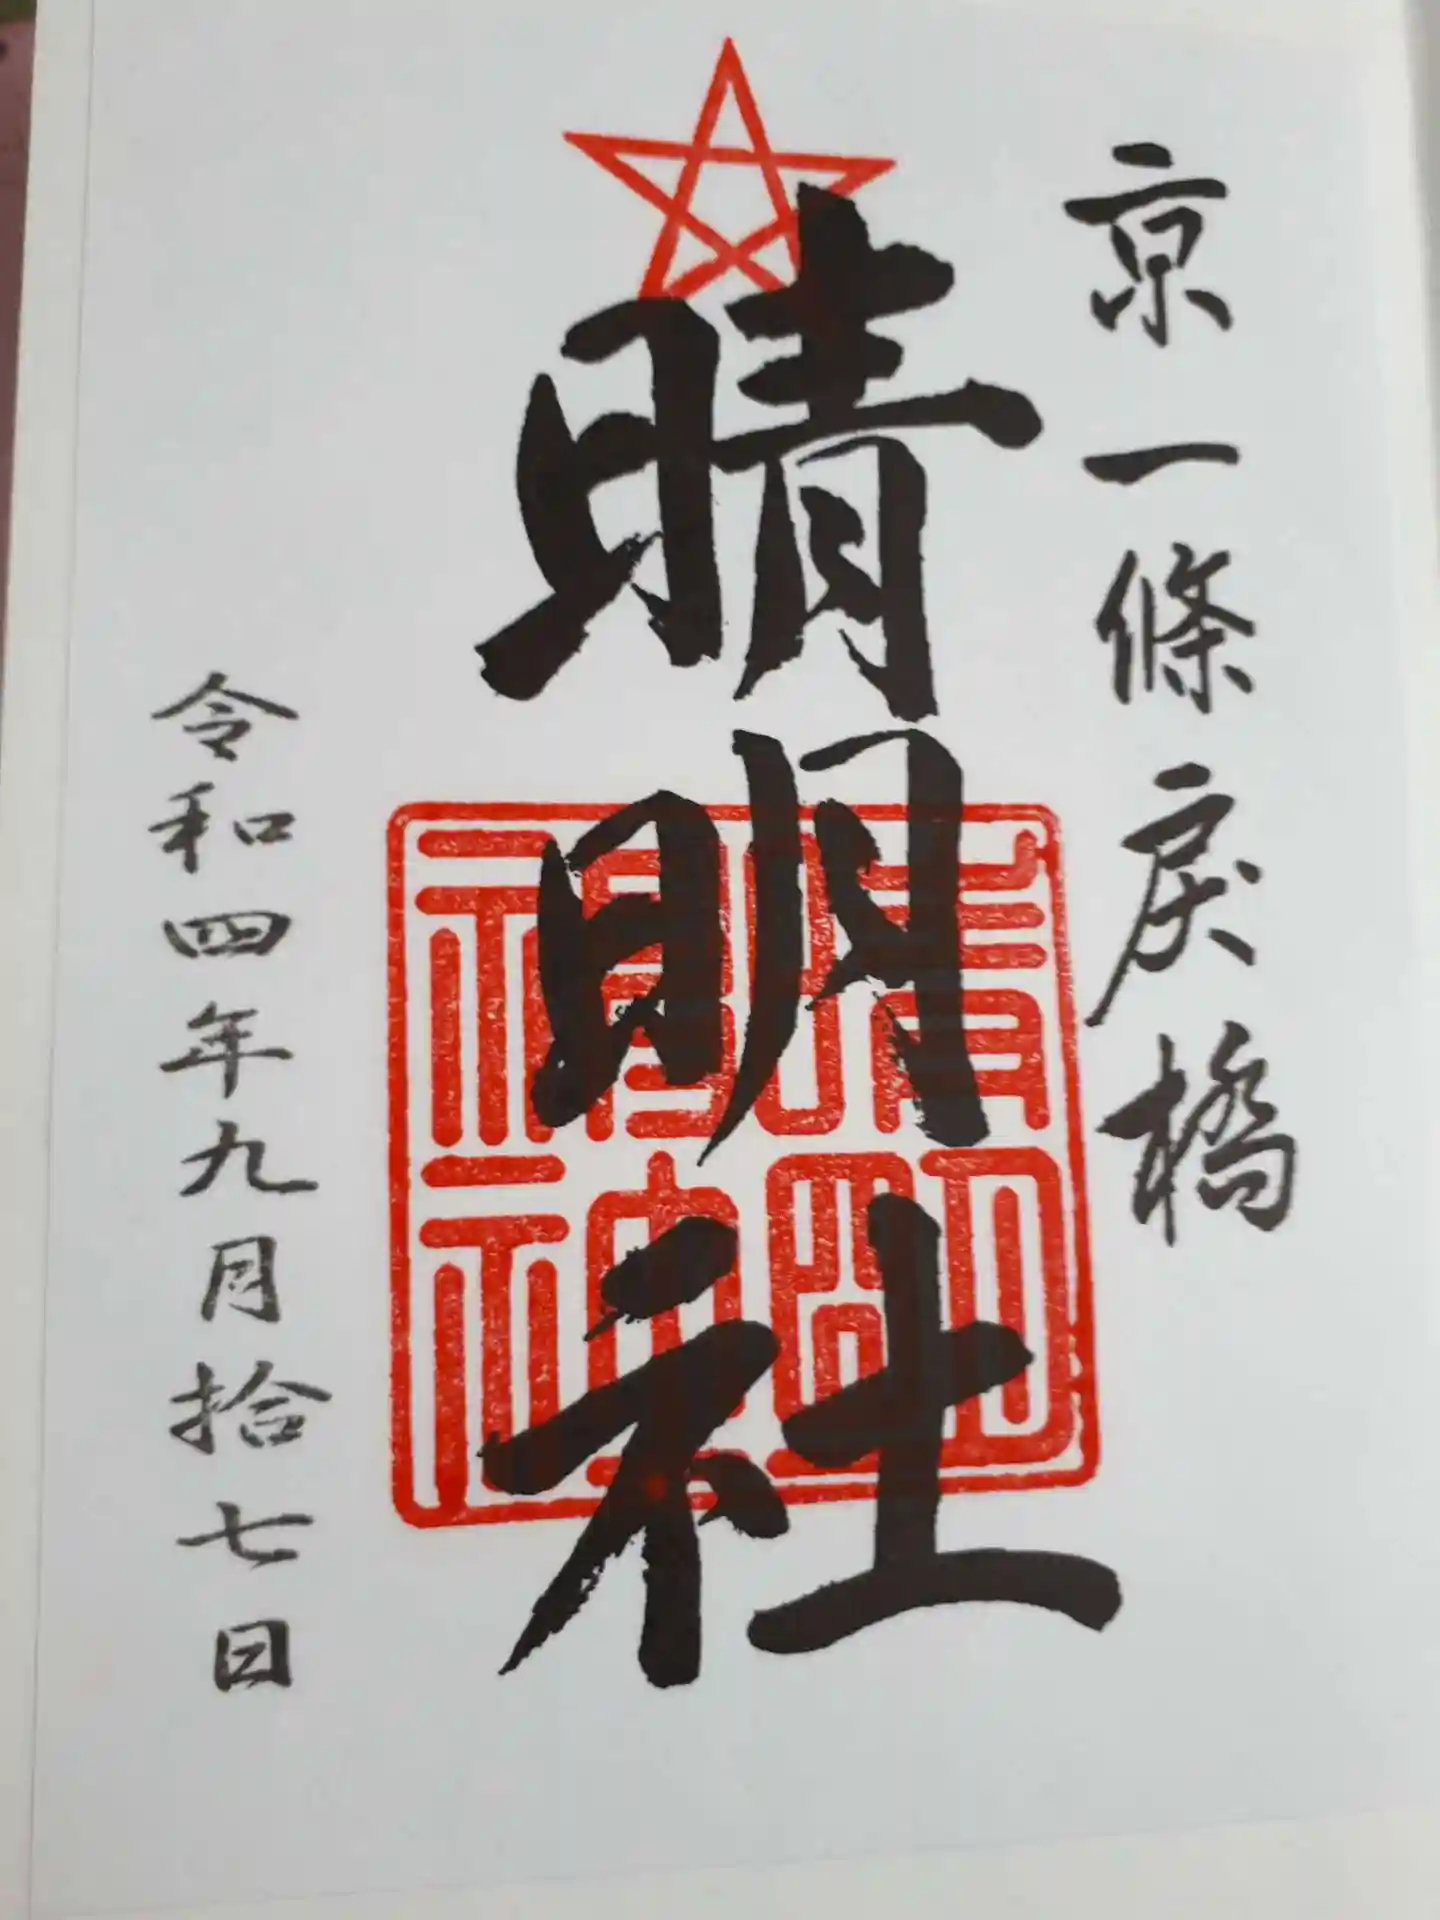 京一條戻橋
晴明社
晴明神社
令和四年九月拾七日